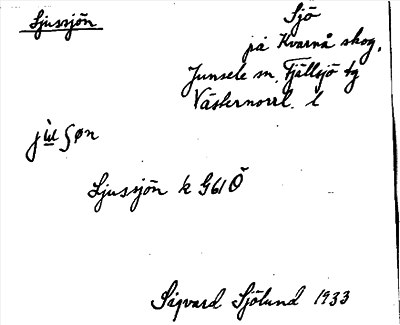 Ljussjön
Sjö
på Kvarnå skog,
Junsele sn, Fjällsjö tg
Västernorrl. l
Ljussjön k G61Ö
Sigvard Sjölund 1933